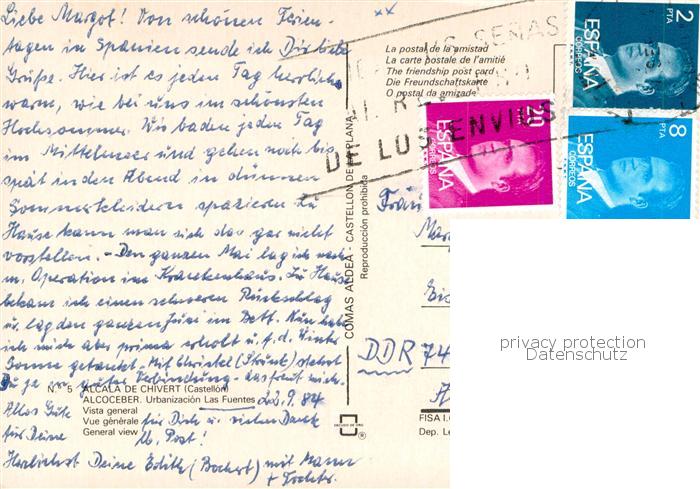 Liebe Margot! Von schönen Ferien-
tagen in Spanien sende ich Dir liebe
Grüße. Hier ist es jeden Tag herrlich
warm, wie bei uns im schönsten
Hochsommer. Wir baden jeden Tag
im Mittelmeer und gehen noch bis
spät in den Abend in dünnen
Sommerkleidern spazieren. Zu
Hause kann man sich das gar nicht
vorstellen. - Den ganzen Mai lag ich nach
m. Operation im Krankenhaus. Zu Hause
bekam ich einen schweren Rückschlag
u. lag den ganzen Juni im Bett. Nun habe
ich mich aber prima erholt u. f. d. Winter
Sonne getankt. - Mit Christel stehst
Du ja in guter Verbindung - das freut mich.
22.9.84
Alles Gute für Dich u. vielen Dank
für Deine lb. Post!
Herzlichst Deine Edith (Bochert) mit Mann
+ Tochter
La postal de la amistad
La carte postale de l'amitié
The friendship post card
Die Freundschaftskarte
O postal da amizade
SEÑAS
DE LOS ENVIOS
2 PTA
ESPAÑA
CORREOS
20
ESPAÑA
CORREOS
8 PTA
ESPAÑA
CORREOS
COMAS ALDEA - CASTELLON DE LA PLANA
Reproducción prohibida
DDR 74
privacy protection
Datenschutz
N.º 5 ALCALA DE CHIVERT (Castellón)
ALCOCEBER. Urbanización Las Fuentes
Vista general
Vue générale
General view
FISA I.G
Dep. Le